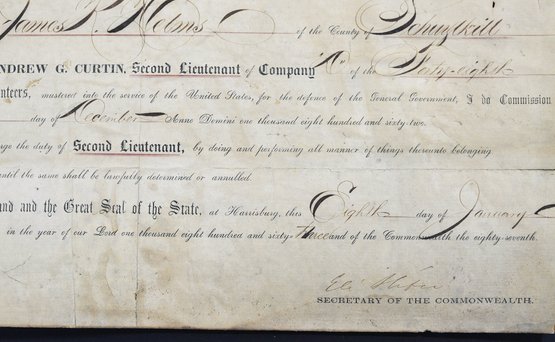 James P. Helms of the County of Schuylkill
NDREW G. CURTIN, Second Lieutenant of Company "A" of the Forty-eighth
nteers, mustered into the service of the United States, for the defence of the General Government, I do Commission
day of December Anno Domini one thousand eight hundred and sixty-two.
rge the duty of Second Lieutenant, by doing and performing all manner of things thereunto belonging
until the same shall be lawfully determined or annulled.
and and the Great Seal of the State, at Harrisburg, this Eighth day of January
in the year of our Lord one thousand eight hundred and sixty-three and of the Commonwealth the eighty-seventh.
Eli Slifer
SECRETARY OF THE COMMONWEALTH.